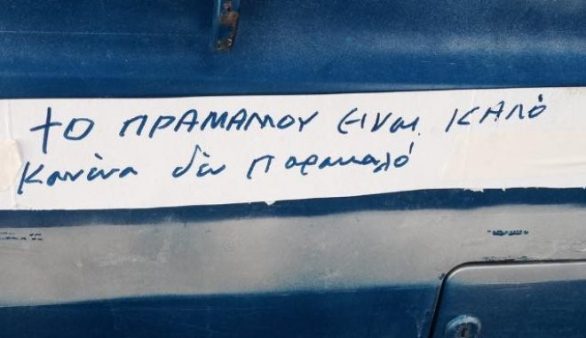 το ΠΡΑΜΑΜΟΥ ΕΙΝαι ΚΑΛό
Κανένα δέν Παρακαλό